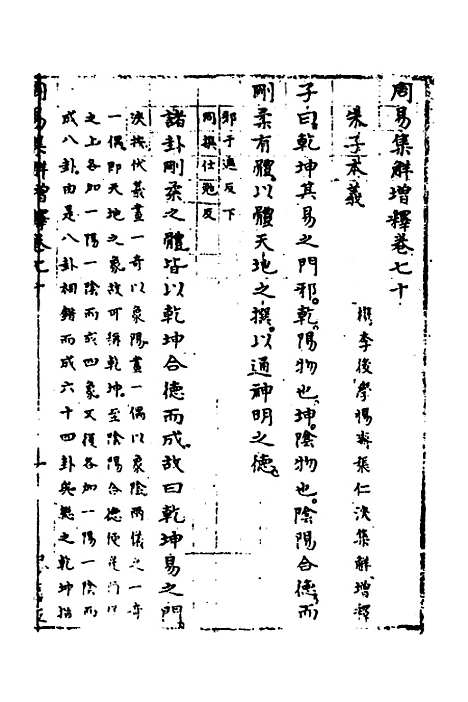 周易集解增釋卷七十
朱子本義
後學鄱陽張仁浹集解增釋
子曰乾坤其易之門邪乾陽物也坤陰物也陰陽合德而
剛柔有體以體天地之撰以通神明之德
邪于遮反下
同撰仕勉反
諸卦剛柔之體皆以乾坤合德而成故曰乾坤易之門
浹按伏羲畫一奇以象陽畫一偶以象陰兩儀之一奇
一偶即天地之象故可稱乾坤至陰陽合德便是
之上各加一陽一陰而成四象又復各加一陽一陰而
成八卦由是八卦相錯而成六十四卦矣懋之乾坤
周易集解增釋卷七十